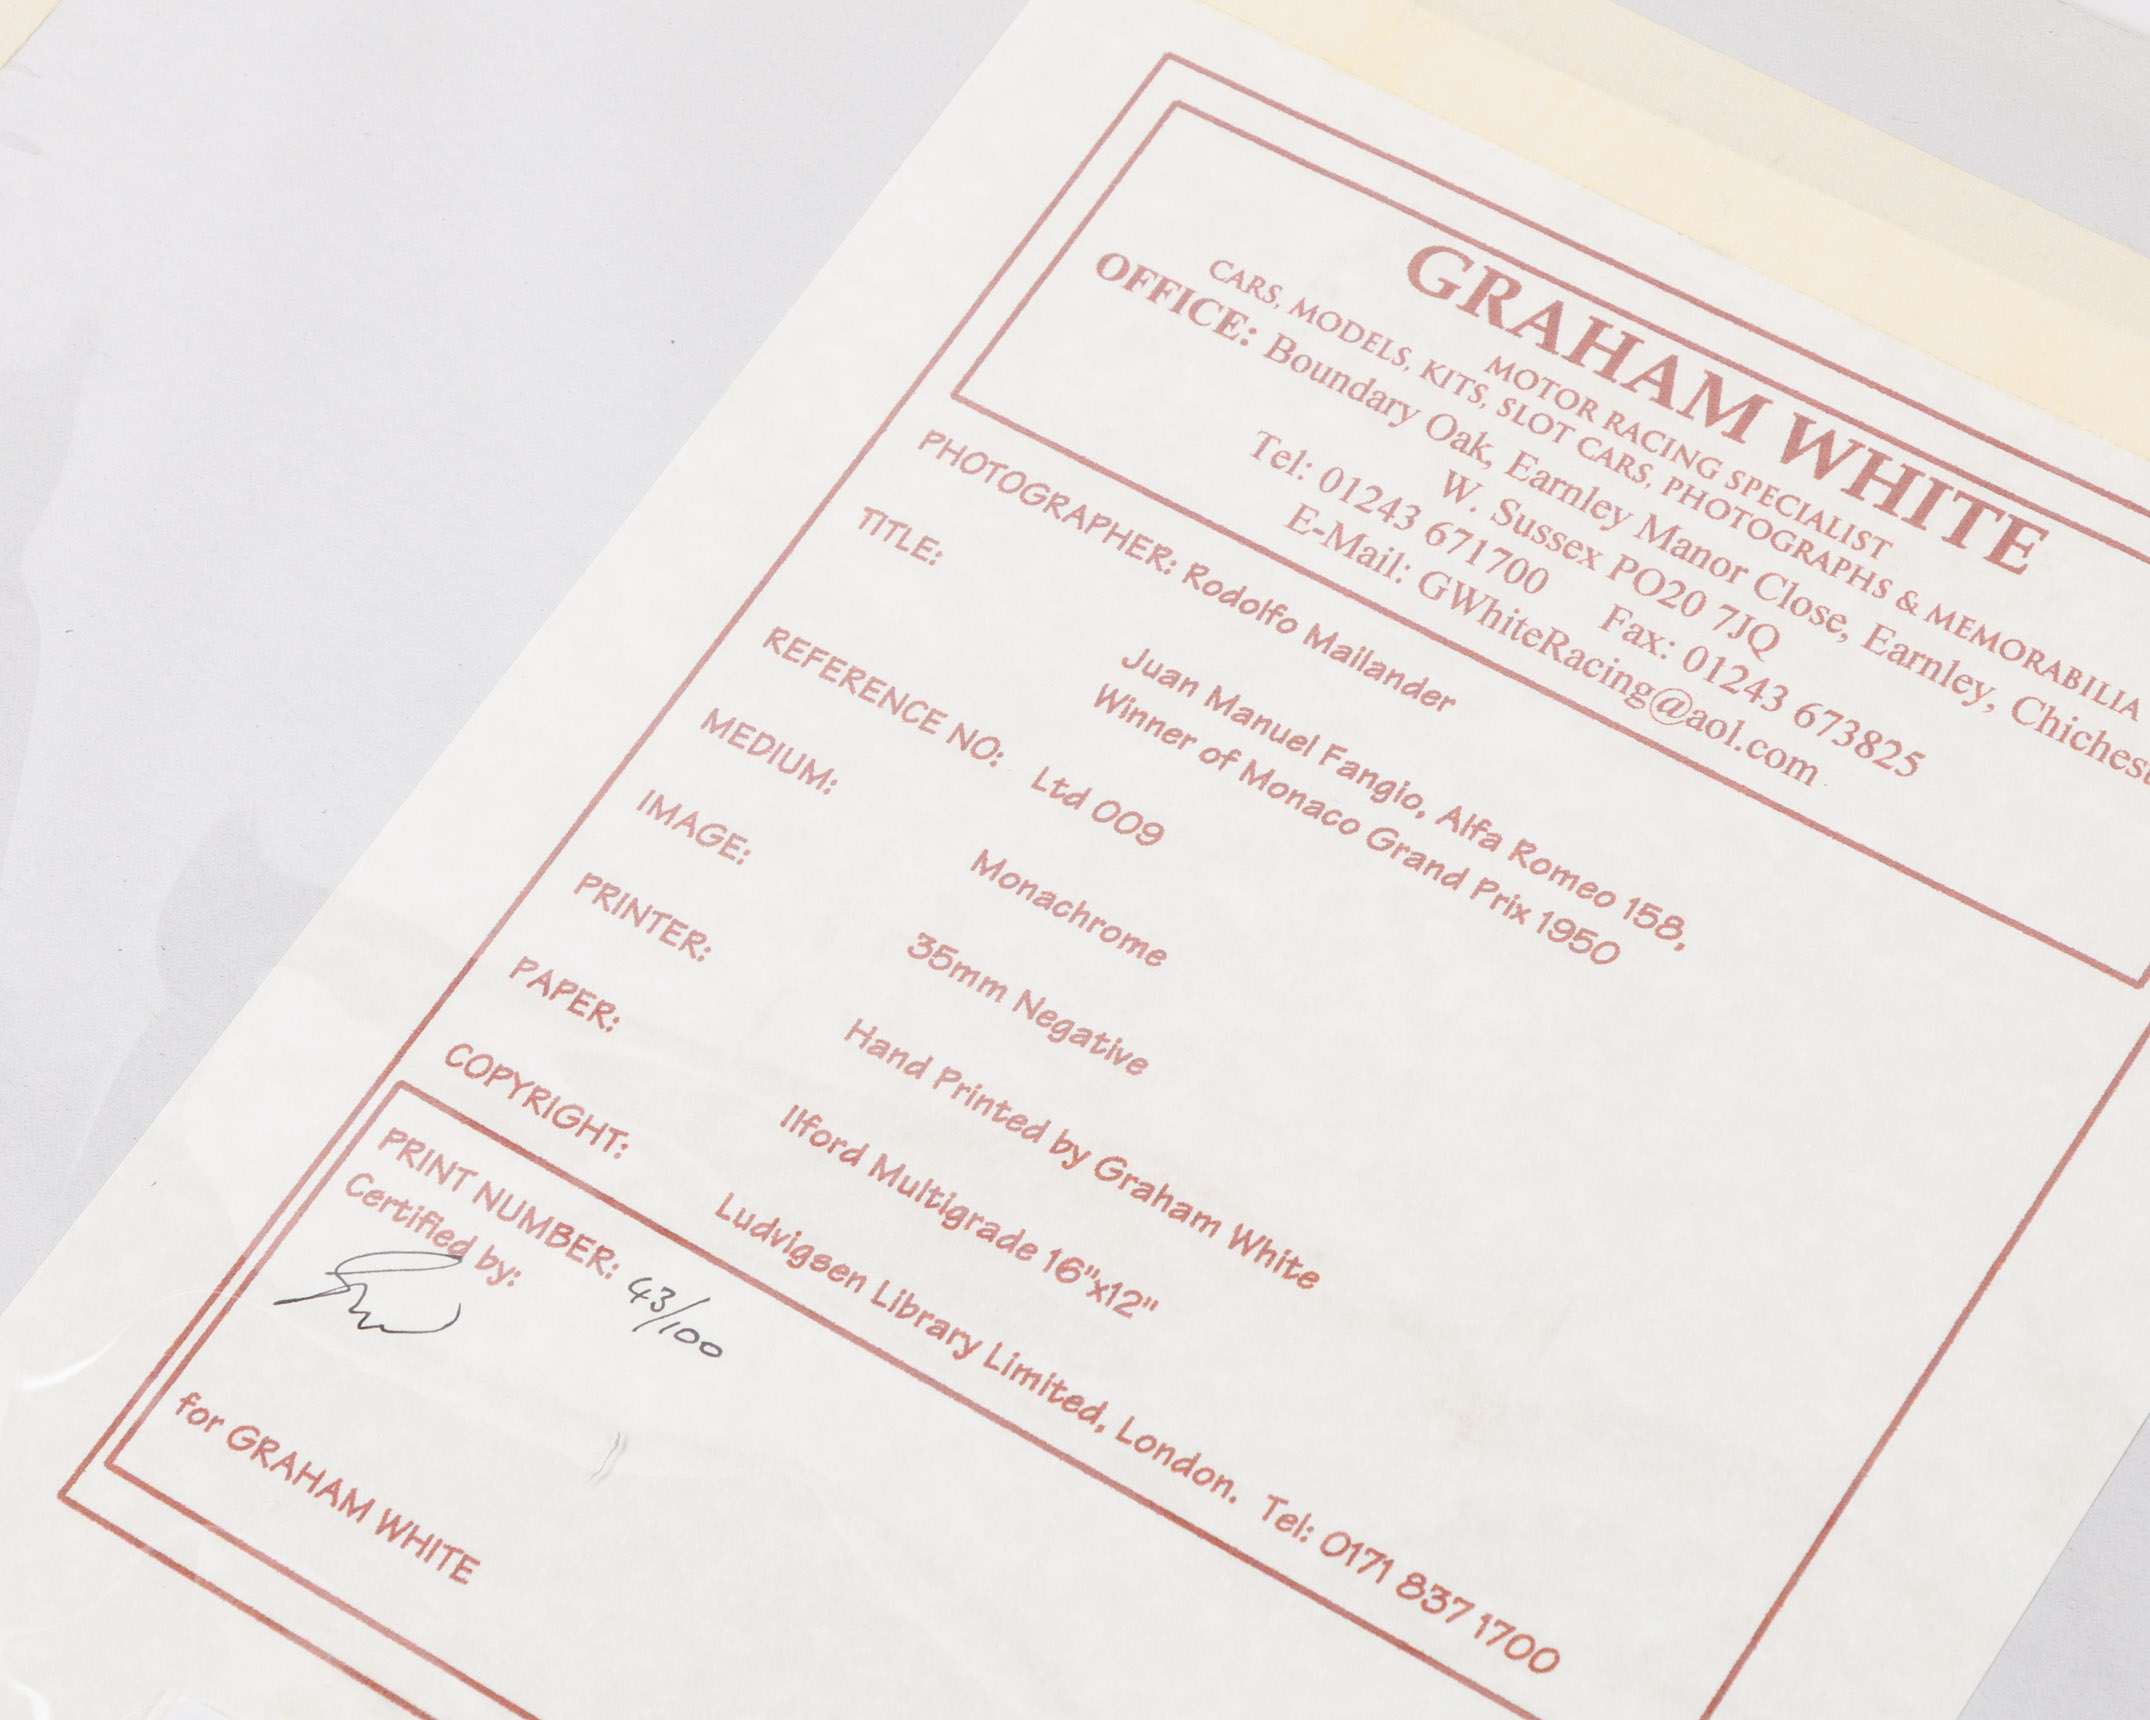 GRAHAM WHITE
MOTOR RACING SPECIALIST
CARS, MODELS, KITS, SLOT CARS, PHOTOGRAPHS & MEMORABILIA
OFFICE: Boundary Oak, Earnley Manor Close, Earnley, Chichest
W. Sussex PO20 7JQ
Tel: 01243 671700 Fax: 01243 673825
E-Mail: GWhiteRacing@aol.com
PHOTOGRAPHER: Rodolfo Mailander
TITLE: Juan Manuel Fangio, Alfa Romeo 158,
Winner of Monaco Grand Prix 1950
REFERENCE NO: Ltd 009
MEDIUM: Monachrome
IMAGE: 35mm Negative
PRINTER: Hand Printed by Graham White
PAPER: Ilford Multigrade 16"x12"
COPYRIGHT: Ludvigsen Library Limited, London. Tel: 0171 837 1700
PRINT NUMBER: 43/100
Certified by:
for GRAHAM WHITE